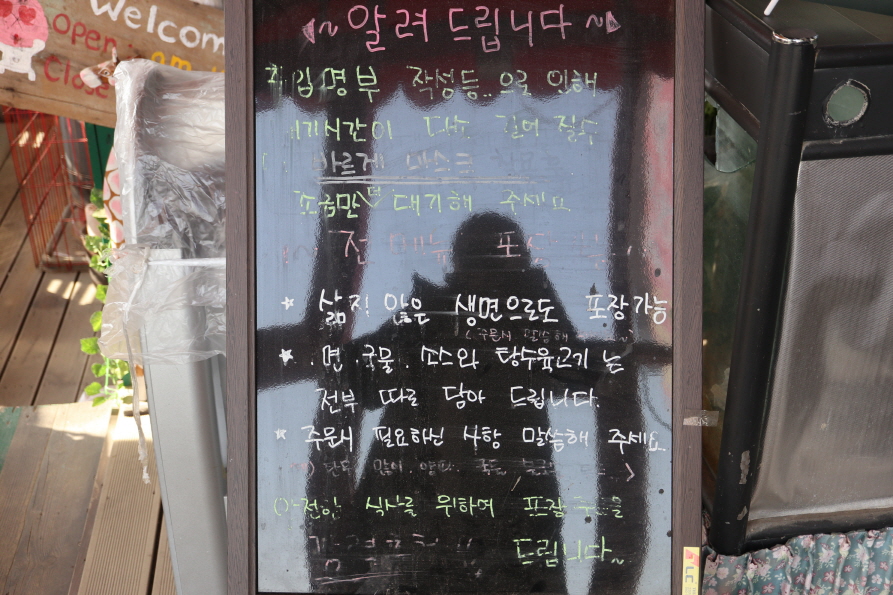 Welcom
Open
Close
~ 알려 드립니다 ~
출입명부 작성등..으로 인해
대기시간이 다소 길어 질수
바르게 마스크
조금만 더 대기해 주세요
전 메뉴 포장
* 삶지 않은 생면으로도 포장가능
주문시 말씀해
* .면.국물. 소스와 탕수육고기는
전부 따로 담아 드립니다.
* 주문시 필요하신 사항 말씀해 주세요
안전한 식사를 위하여 포장
드립니다~